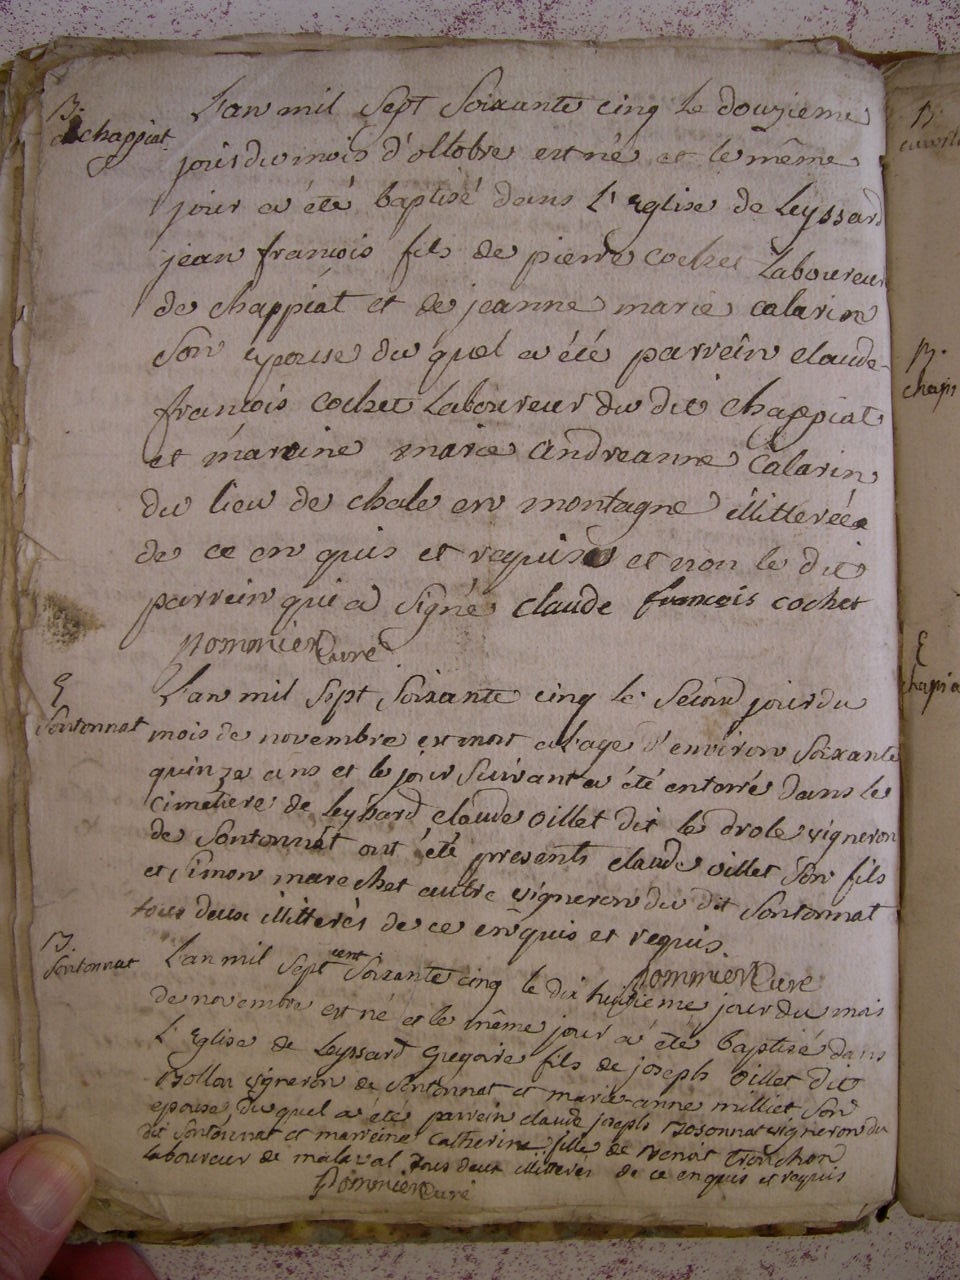 B.
chappiat
L'an mil sept soixante cinq le douzieme
jour du mois d'ottobre est né et le même
jour a été baptisé dans l'Eglise de Leyssard
jean françois fils de pierre cochet Laboureur
de chappiat et de jeanne marie calarin
son epouse du quel a été parrein claude
françois cochet Laboureur du dit chappiat
et marreine marie andreanne calarin
du lieu de chale en montagne illiterée
de ce enquis et requise et non le dit
parrein qui a signé claude francois cochet
pommier Curé
E
Sontonnat
L'an mil sept soixante cinq le second jour du
mois de novembre est mort a l'age d'environ soixante
quinze ans et le jour suivant a été enterré dans le
cimetiere de leyssard claude oillet dit le drole vigneron
de Sontonnat ont été presents claude oillet son fils
et simon marechet autre vigneron du dit Sontonnat
tous deux illitterés de ce enquis et requis
pommier Curé
B.
Sontonnat
L'an mil sept cent soixante cinq le dix huitieme jour du mois
de novembre est né et le même jour a été baptisé dans
L'Eglise de Leyssard Gregoire fils de joseph oillet dit
Bollon vigneron de Sontonnat et marie anne milliet son
epouse, du quel a été parrein claude joseph Bosonnat vigneron du
dit Sontonnat et marreine catherine fille de Benoit Tronchon
laboureur de malaval tous deux illitteres de ce enquis et requis
pommier Curé
B.
B.
chapi
E
chapia